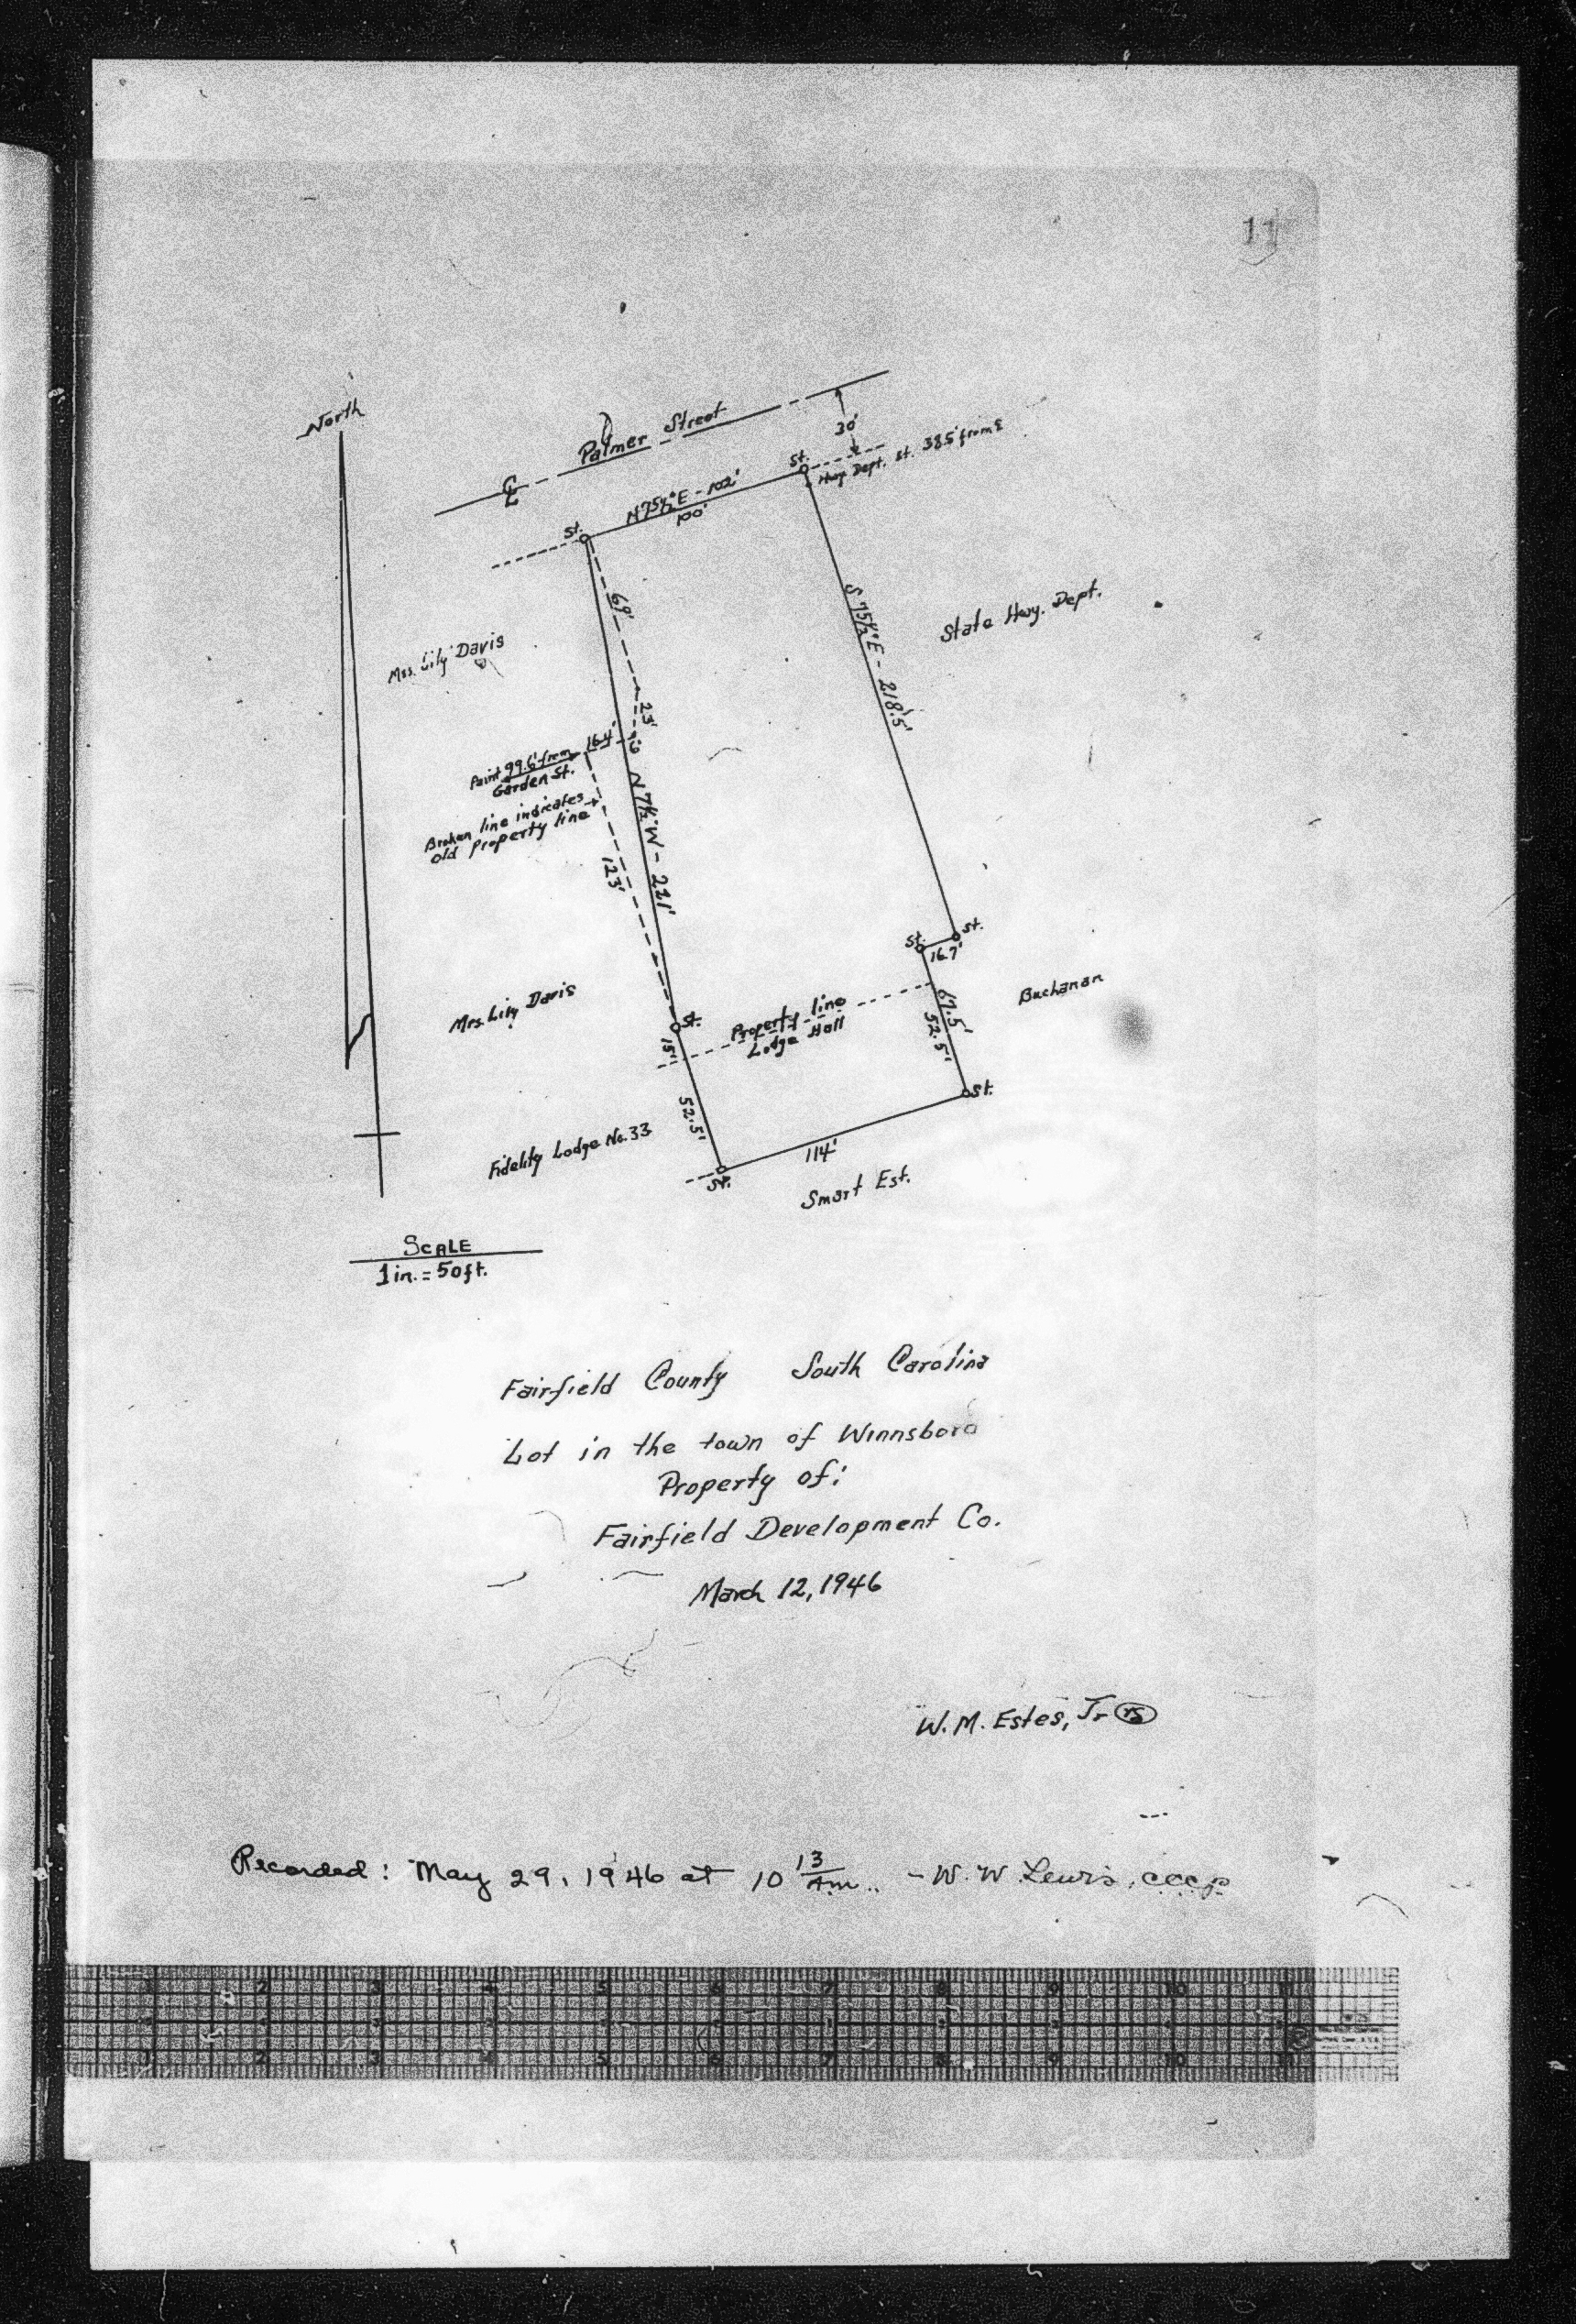 11
North
Palmer Street
30'
St.
Hwy. Dept. St. 38.5' from ℄
℄
N 75½° E - 102'
100'
St.
69'
S 75½° E - 218.5'
State Hwy. Dept.
Mrs. Lily Davis
23'
16.4'
Point 99.6' from
Garden St.
Broken line indicates
old Property line
N 7½° W - 221'
123'
St.
St.
16.7'
Mrs. Lily Davis
St.
Property line
Lodge Hall
67.5'
52.5'
Buchanan
15'
St.
52.5'
Fidelity Lodge No. 33
114'
St.
Smart Est.
SCALE
1 in. = 50 ft.
Fairfield County South Carolina
Lot in the town of Winnsboro
Property of:
Fairfield Development Co.
March 12, 1946
W. M. Estes, Jr. RS
Recorded: May 29, 1946 at 10 13/Am. - W. W. Lewis, cccp
1 2 3 4 5 6 7 8 9 10 11
1 2 3 4 5 6 7 8 9 10 11